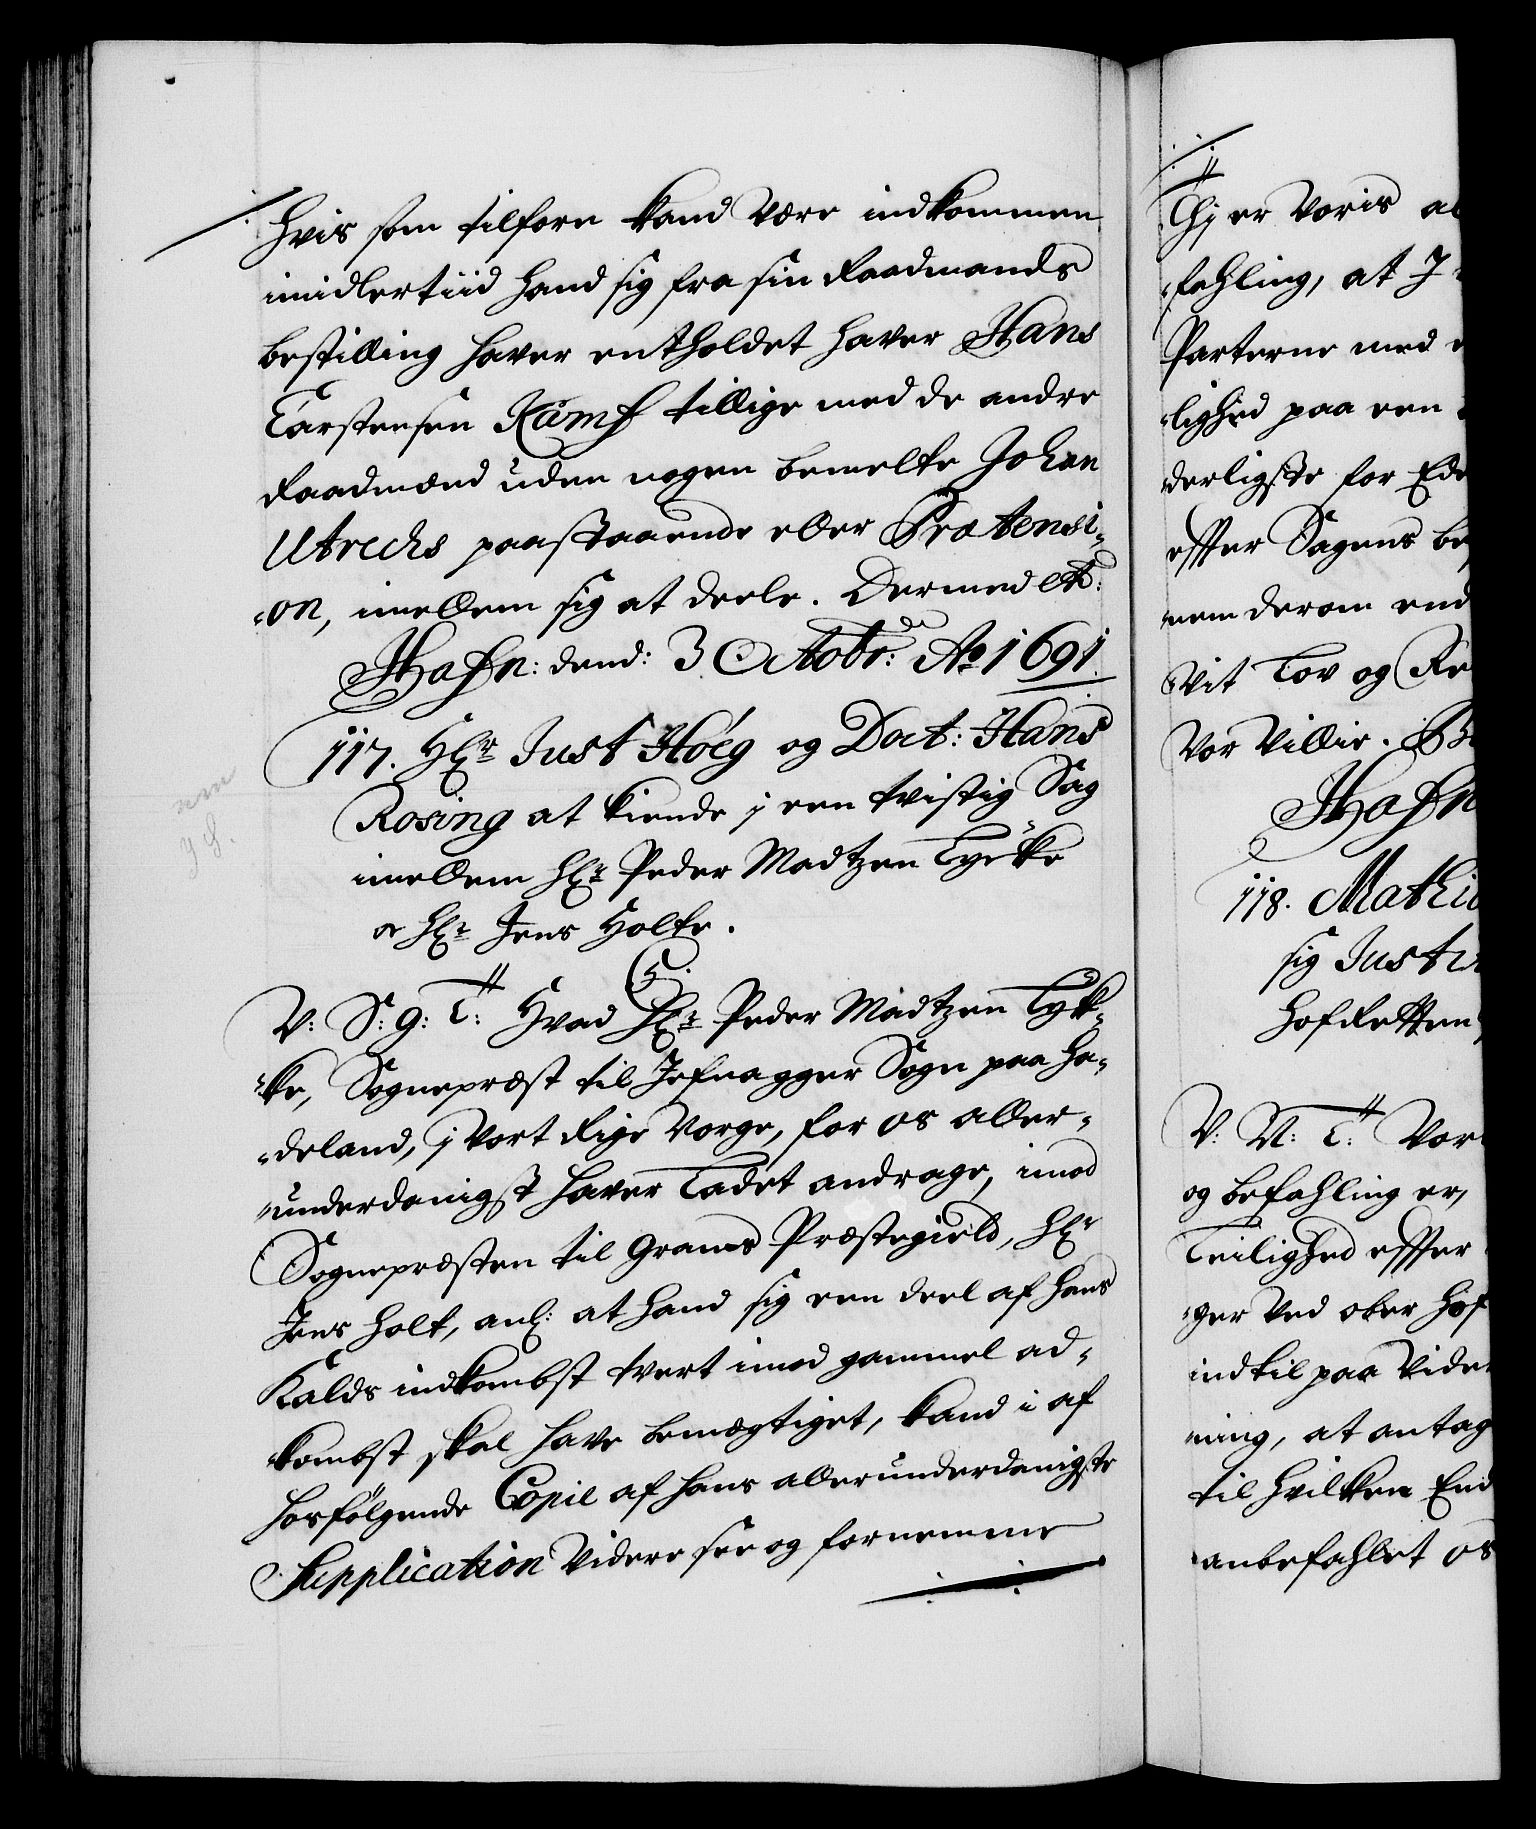 hvis som tilforn kand være indkommen
imidlertiid hand sig fra sin Raadmands
bestilling haver entholdet haver Hans
Carstensen Kamp tillige med de andre
Raadmænd uden nogen bemelte Johan
Utrechs paastaaende eller Prætensi-
-on, imellem sig at deele. Dermed etc:
Hafn: dend: 3 Octobr: Ao 1691.
117. Hr Just Höeg og Doct: Hans
Rosing at kiende i een tvistig Sag
imellem Hr Peder Madtzen Lycke
oc Hr Jens Holte.
C5.
V: S: G: T: Hvad Hr Peder Madtzen Lyk-
-ke, Sognepræst til Jefnager Sogn paa Ha-
-deland, i vort Rige Norge, for os aller-
-underdanigst haver ladet andrage, imod
Sognepræsten til Grans Præstegield, Hr
Jens Holt, anl: at hand sig een deel af hans
Kalds indkombst tvert imod gammel ad-
-kombst skal have bemægtiget, kand i af
hosfølgende Copie af hans allerunderdanigste
Supplication videre see og fornemme
Thj er Voris al
-fahling, at J
Parterne med
-lighed paa een
-derligste for Ede
effter Sagens be
-nem derom end
vit Lov og Re
Vor Villie. B
Hafn
118. Mathi
sig Justi
Hofretten
V: N: T: Vor
og befahling er,
Leilighed effter
-ger ved ober Hof
indtil paa Vider
-ning, at antag
til hvilken End
anbefahlet os